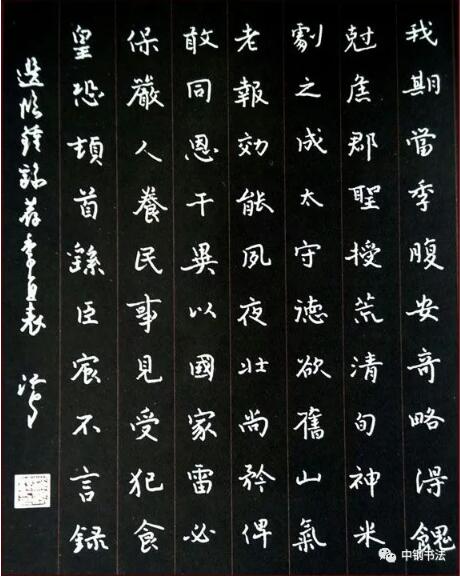 我期當季腹安奇略得餽
尅焦郡聖授荒清旬神米
劇之成太守德欲舊山氣
老報効能夙夜壯尚矜俾
敢同恩干異以國家雷必
保嚴人養民事見受犯食
皇恐頓首繇臣宸不言録
选临鍾繇荐季直表
中钢书法